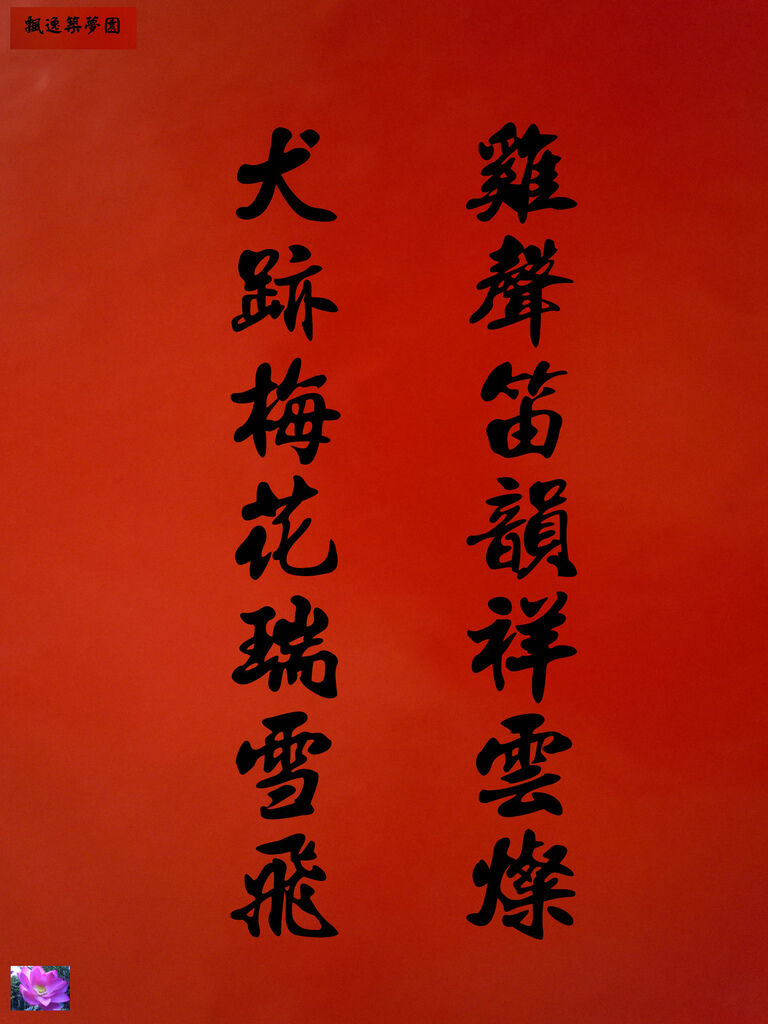 飄逸築夢園
雞聲笛韻祥雲燦
犬跡梅花瑞雪飛